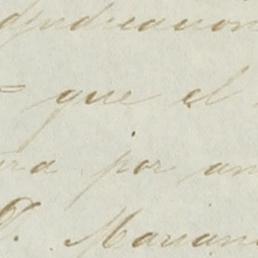 adjudicacion
= que el
ra por an
D. Marian